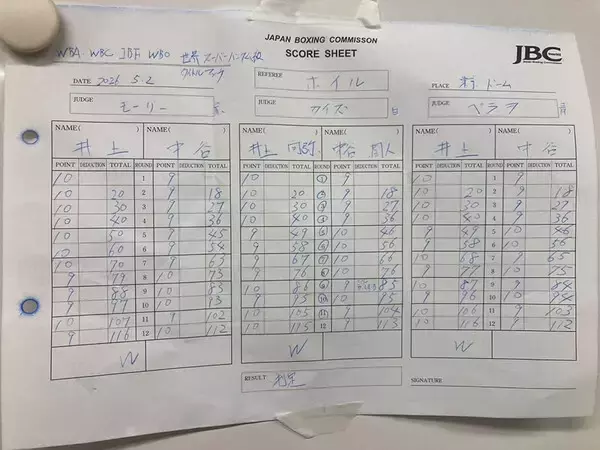 JAPAN BOXING COMMISSON
SCORE SHEET
JBC
WBA WBC IBF WBO 世界スーパーバンタム級
タイトルマッチ
DATE 2026 5.2 REFEREE ホイル PLACE 東京ドーム
JUDGE モーリー JUDGE JUDGE ペラヨ
NAME( ) NAME( ) NAME( ) NAME( ) NAME( ) NAME( )
井上 中谷 井上 中谷 井上 中谷
POINT DEDUCTION TOTAL ROUND POINT DEDUCTION TOTAL POINT DEDUCTION TOTAL ROUND POINT DEDUCTION TOTAL POINT DEDUCTION TOTAL ROUND POINT DEDUCTION TOTAL
10 1 9 10 1 9 10 1 9
10 20 2 9 18 10 20 2 9 18 10 20 2 9 18
10 30 3 9 27 10 30 3 9 27 10 30 3 9 27
10 40 4 9 36 10 40 4 9 36 10 40 4 9 36
10 50 5 9 45 9 49 5 10 46 9 49 5 10 46
10 60 6 9 54 9 58 6 10 56 9 58 6 10 56
10 70 7 9 63 9 67 7 10 66 10 68 7 9 65
9 79 8 10 73 9 76 8 10 76 9 77 8 10 75
9 88 9 10 83 10 86 9 9 85 10 87 9 9 84
9 97 10 10 93 9 95 10 10 95 9 96 10 10 94
10 107 11 9 102 10 105 11 9 104 10 106 11 9 103
9 116 12 10 112 10 115 12 9 113 10 116 12 9 112
W W W
RESULT 判定 SIGNATURE